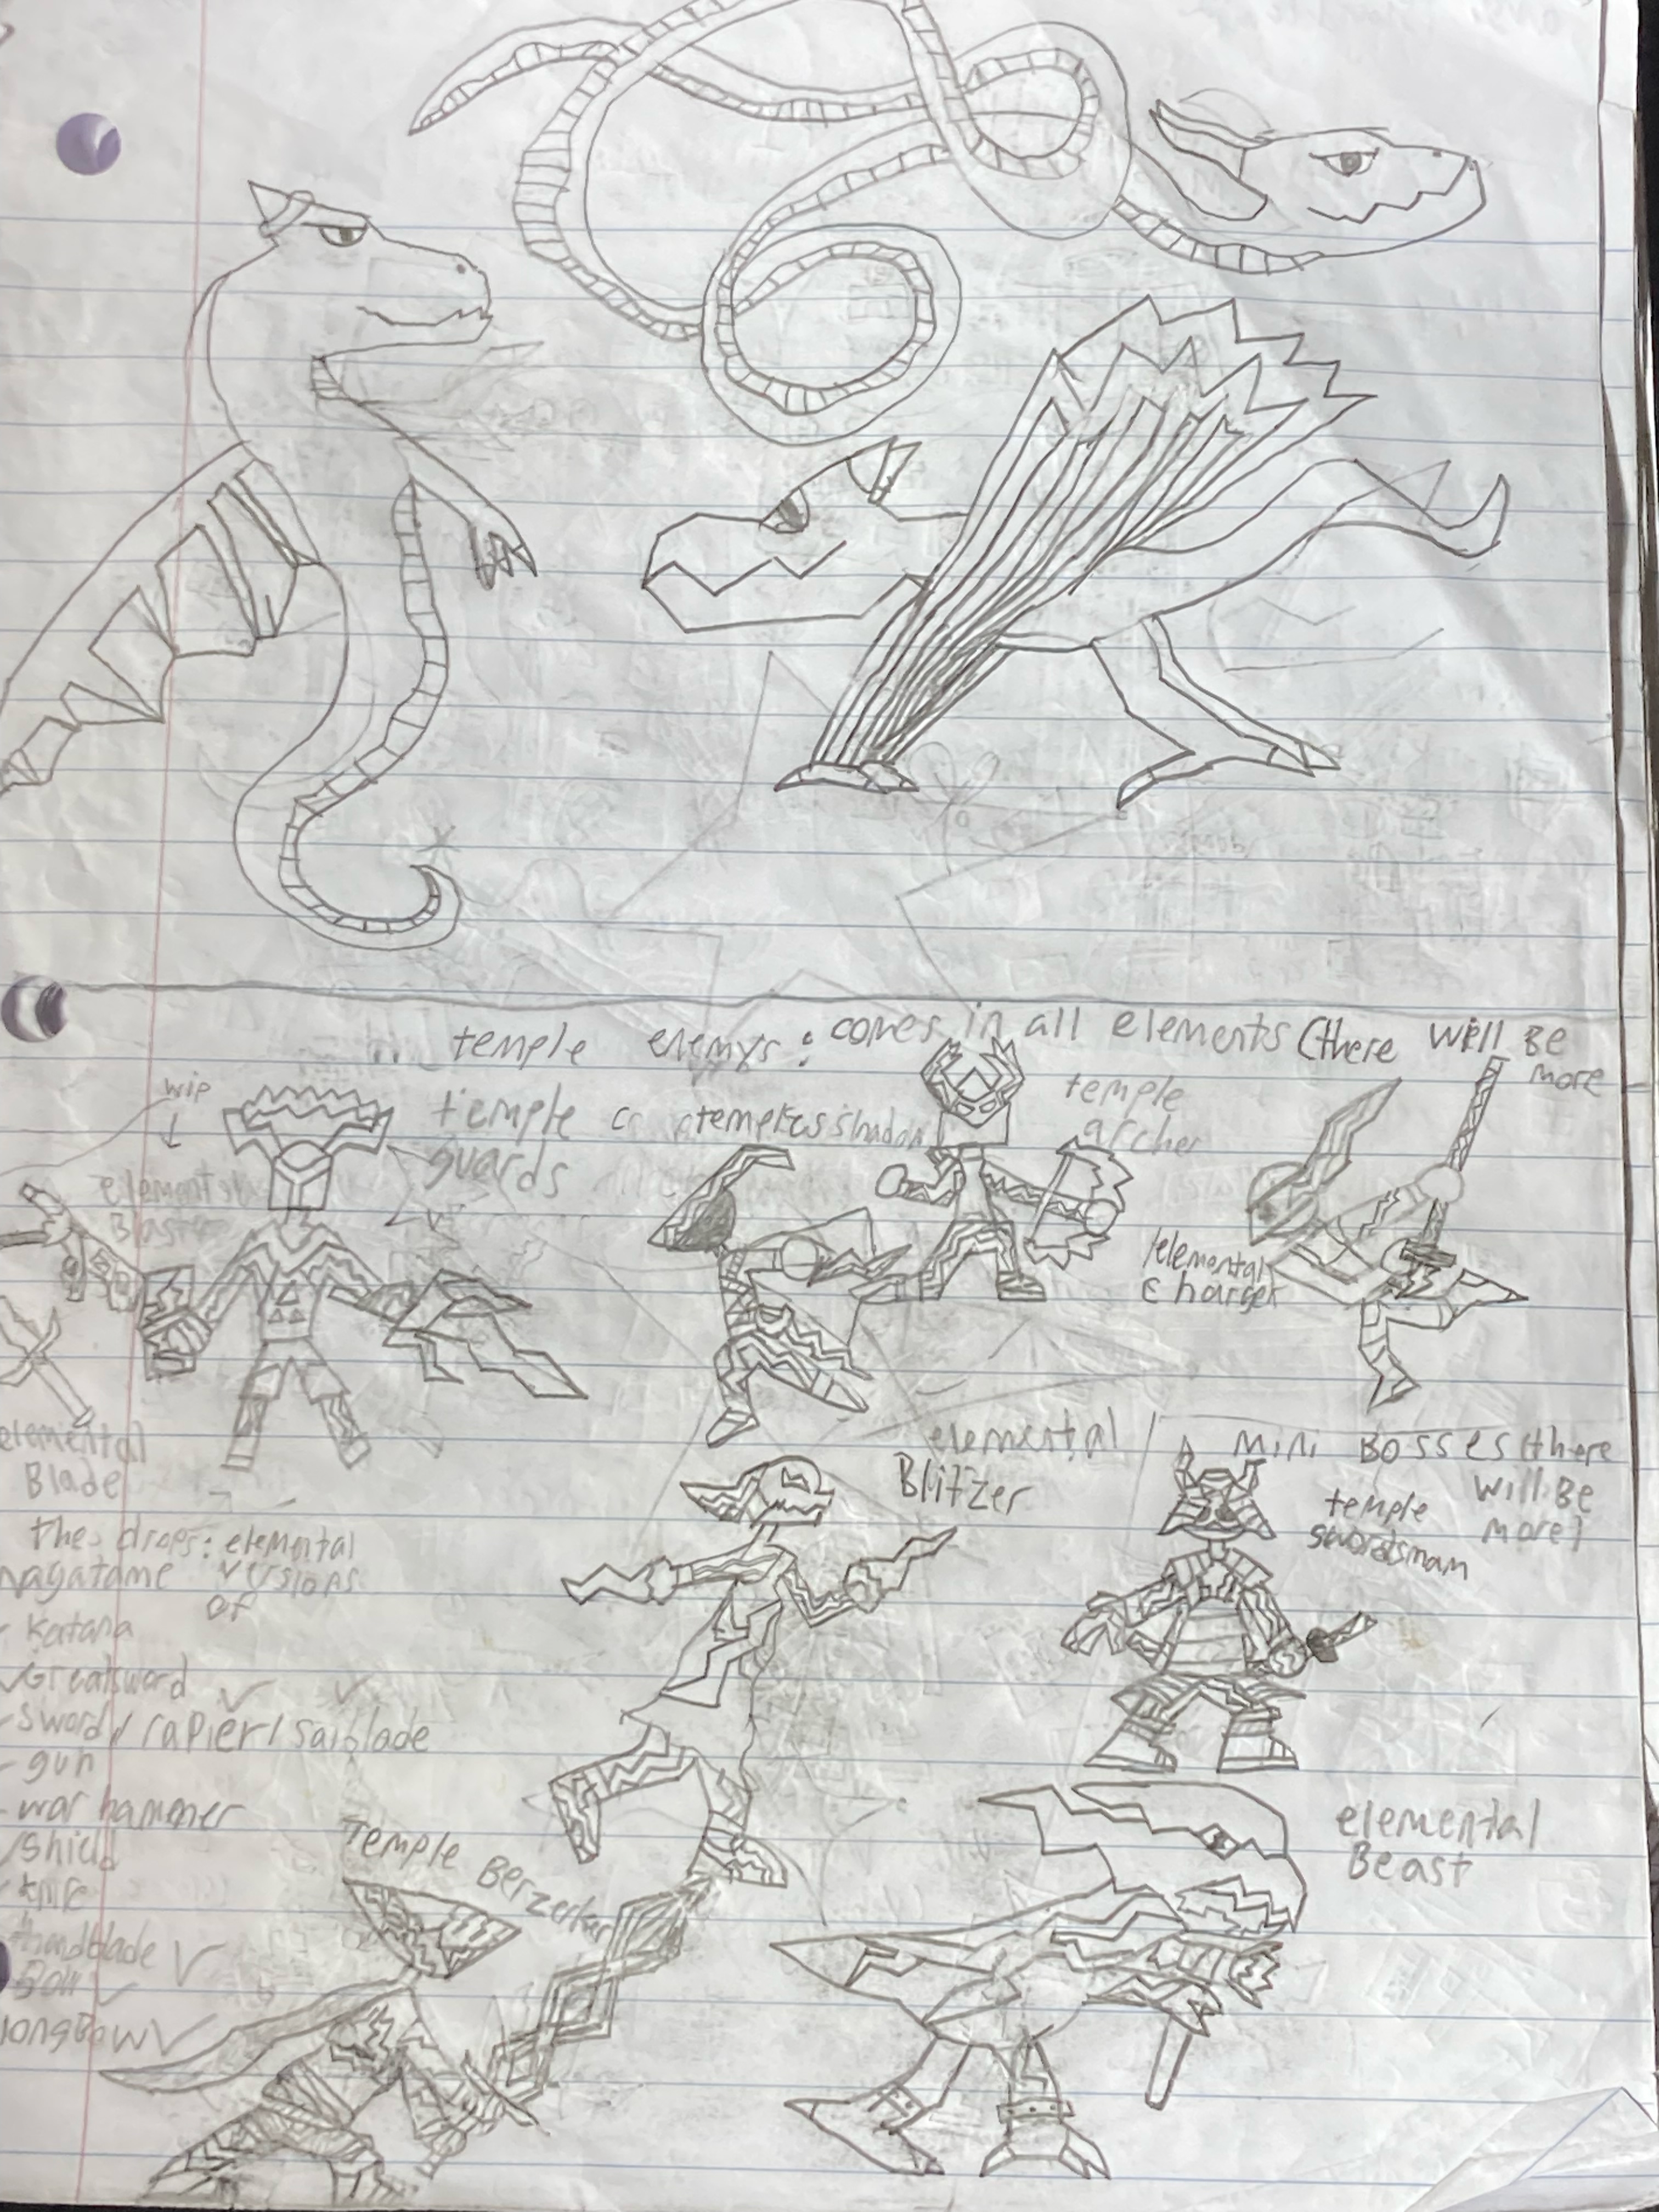 temple enemys : comes in all elements (there will Be more
wip
temple
guards
temple
archer
elemental
Blaster
elemental
charger
elemental
Blade
elemental
Blitzer
Mini Bosses (there
will Be
more)
temple
swordsman
the drops: elemental
versions
of
- katana
Greatsword
- sword / rapier / saiblade
- gun
- war hammer
shield
handblade
Bow
longBow
Temple Berzerker
elemental
Beast